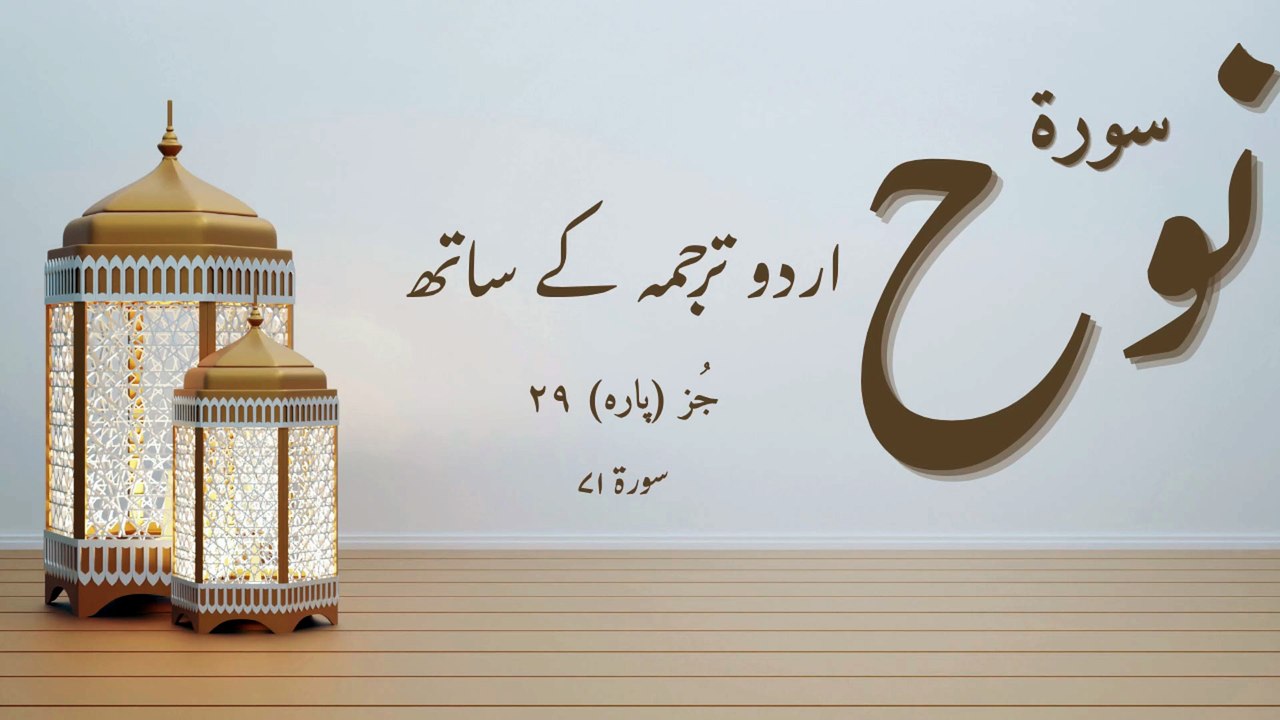 سورة
نوح
اردو ترجمہ کے ساتھ
جُز (پارہ) ۲۹
سورۃ ۷۱